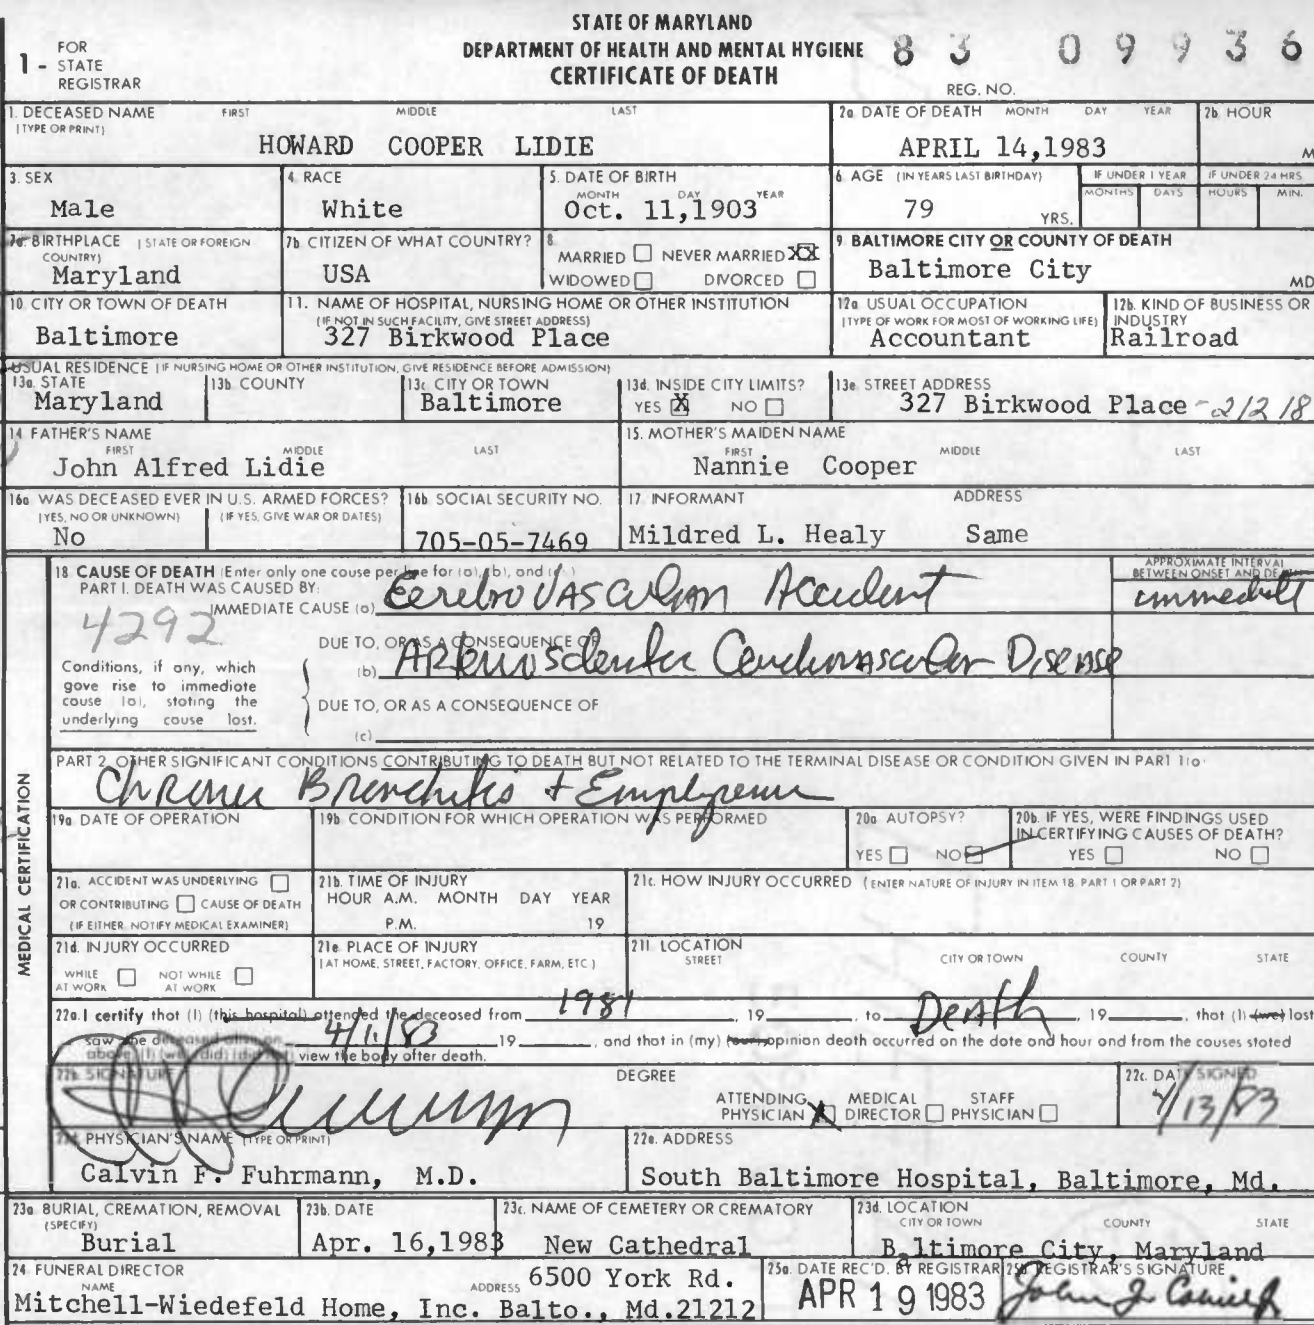 STATE OF MARYLAND
DEPARTMENT OF HEALTH AND MENTAL HYGIENE
CERTIFICATE OF DEATH
1 - FOR STATE REGISTRAR
83 09936
REG. NO.
1. DECEASED NAME (TYPE OR PRINT) FIRST MIDDLE LAST
HOWARD COOPER LIDIE
2a. DATE OF DEATH MONTH DAY YEAR
APRIL 14,1983
2b. HOUR
M
3. SEX
Male
4. RACE
White
5. DATE OF BIRTH
MONTH DAY YEAR
Oct. 11,1903
6. AGE (IN YEARS LAST BIRTHDAY)
79 YRS.
IF UNDER 1 YEAR
MONTHS DAYS
IF UNDER 24 HRS.
HOURS MIN.
7a. BIRTHPLACE (STATE OR FOREIGN COUNTRY)
Maryland
7b. CITIZEN OF WHAT COUNTRY?
USA
8.
MARRIED NEVER MARRIED XX
WIDOWED DIVORCED
9. BALTIMORE CITY OR COUNTY OF DEATH
Baltimore City
MD
10. CITY OR TOWN OF DEATH
Baltimore
11. NAME OF HOSPITAL, NURSING HOME OR OTHER INSTITUTION
(IF NOT IN SUCH FACILITY, GIVE STREET ADDRESS)
327 Birkwood Place
12a. USUAL OCCUPATION
(TYPE OF WORK FOR MOST OF WORKING LIFE)
Accountant
12b. KIND OF BUSINESS OR INDUSTRY
Railroad
USUAL RESIDENCE (IF NURSING HOME OR OTHER INSTITUTION, GIVE RESIDENCE BEFORE ADMISSION)
13a. STATE
Maryland
13b. COUNTY
13c. CITY OR TOWN
Baltimore
13d. INSIDE CITY LIMITS?
YES X NO
13e. STREET ADDRESS
327 Birkwood Place - 21218
14. FATHER'S NAME
FIRST MIDDLE LAST
John Alfred Lidie
15. MOTHER'S MAIDEN NAME
FIRST MIDDLE LAST
Nannie Cooper
16a. WAS DECEASED EVER IN U.S. ARMED FORCES?
(YES, NO OR UNKNOWN) (IF YES, GIVE WAR OR DATES)
No
16b. SOCIAL SECURITY NO.
705-05-7469
17. INFORMANT ADDRESS
Mildred L. Healy Same
18. CAUSE OF DEATH (Enter only one couse per line for (a), (b), and (c).)
PART I. DEATH WAS CAUSED BY:
IMMEDIATE CAUSE (a) Cerebro Vascular Accident
APPROXIMATE INTERVAL BETWEEN ONSET AND DEATH
immediate
4292
DUE TO, OR AS A CONSEQUENCE OF
(b) Arteriosclerotic Cardiovascular Disease
Conditions, if any, which
gove rise to immediate
cause (a), stating the
underlying cause lost.
DUE TO, OR AS A CONSEQUENCE OF
(c)
MEDICAL CERTIFICATION
PART 2. OTHER SIGNIFICANT CONDITIONS CONTRIBUTING TO DEATH BUT NOT RELATED TO THE TERMINAL DISEASE OR CONDITION GIVEN IN PART 1(a)
Chronic Bronchitis + Emphysema
19a. DATE OF OPERATION
19b. CONDITION FOR WHICH OPERATION WAS PERFORMED
20a. AUTOPSY?
YES NO
20b. IF YES, WERE FINDINGS USED
IN CERTIFYING CAUSES OF DEATH?
YES NO
21a. ACCIDENT WAS UNDERLYING
OR CONTRIBUTING CAUSE OF DEATH
(IF EITHER, NOTIFY MEDICAL EXAMINER)
21b. TIME OF INJURY
HOUR A.M. MONTH DAY YEAR
P.M. 19
21c. HOW INJURY OCCURRED (ENTER NATURE OF INJURY IN ITEM 18, PART 1 OR PART 2)
21d. INJURY OCCURRED
WHILE AT WORK NOT WHILE AT WORK
21e. PLACE OF INJURY
(AT HOME, STREET, FACTORY, OFFICE, FARM, ETC.)
21f. LOCATION
STREET CITY OR TOWN COUNTY STATE
22a. I certify that (I) (this hospital) attended the deceased from 1981, 19, to Death, 19, that (I) (we) lost
saw the deceased alive on 4/1/83 19, and that in (my) (our) opinion death occurred on the date and hour and from the causes stated
above, (I) (we) (did) (did not) view the body after death.
22b. SIGNATURE
DEGREE
ATTENDING PHYSICIAN X MEDICAL DIRECTOR STAFF PHYSICIAN
22c. DATE SIGNED
4/13/83
22d. PHYSICIAN'S NAME (TYPE OR PRINT)
Calvin F. Fuhrmann, M.D.
22e. ADDRESS
South Baltimore Hospital, Baltimore, Md.
23a. BURIAL, CREMATION, REMOVAL
(SPECIFY)
Burial
23b. DATE
Apr. 16,1983
23c. NAME OF CEMETERY OR CREMATORY
New Cathedral
23d. LOCATION
CITY OR TOWN COUNTY STATE
Baltimore City, Maryland
24. FUNERAL DIRECTOR
NAME ADDRESS
6500 York Rd.
Mitchell-Wiedefeld Home, Inc. Balto., Md.21212
25a. DATE REC'D. BY REGISTRAR
APR 19 1983
25b. REGISTRAR'S SIGNATURE
John J.